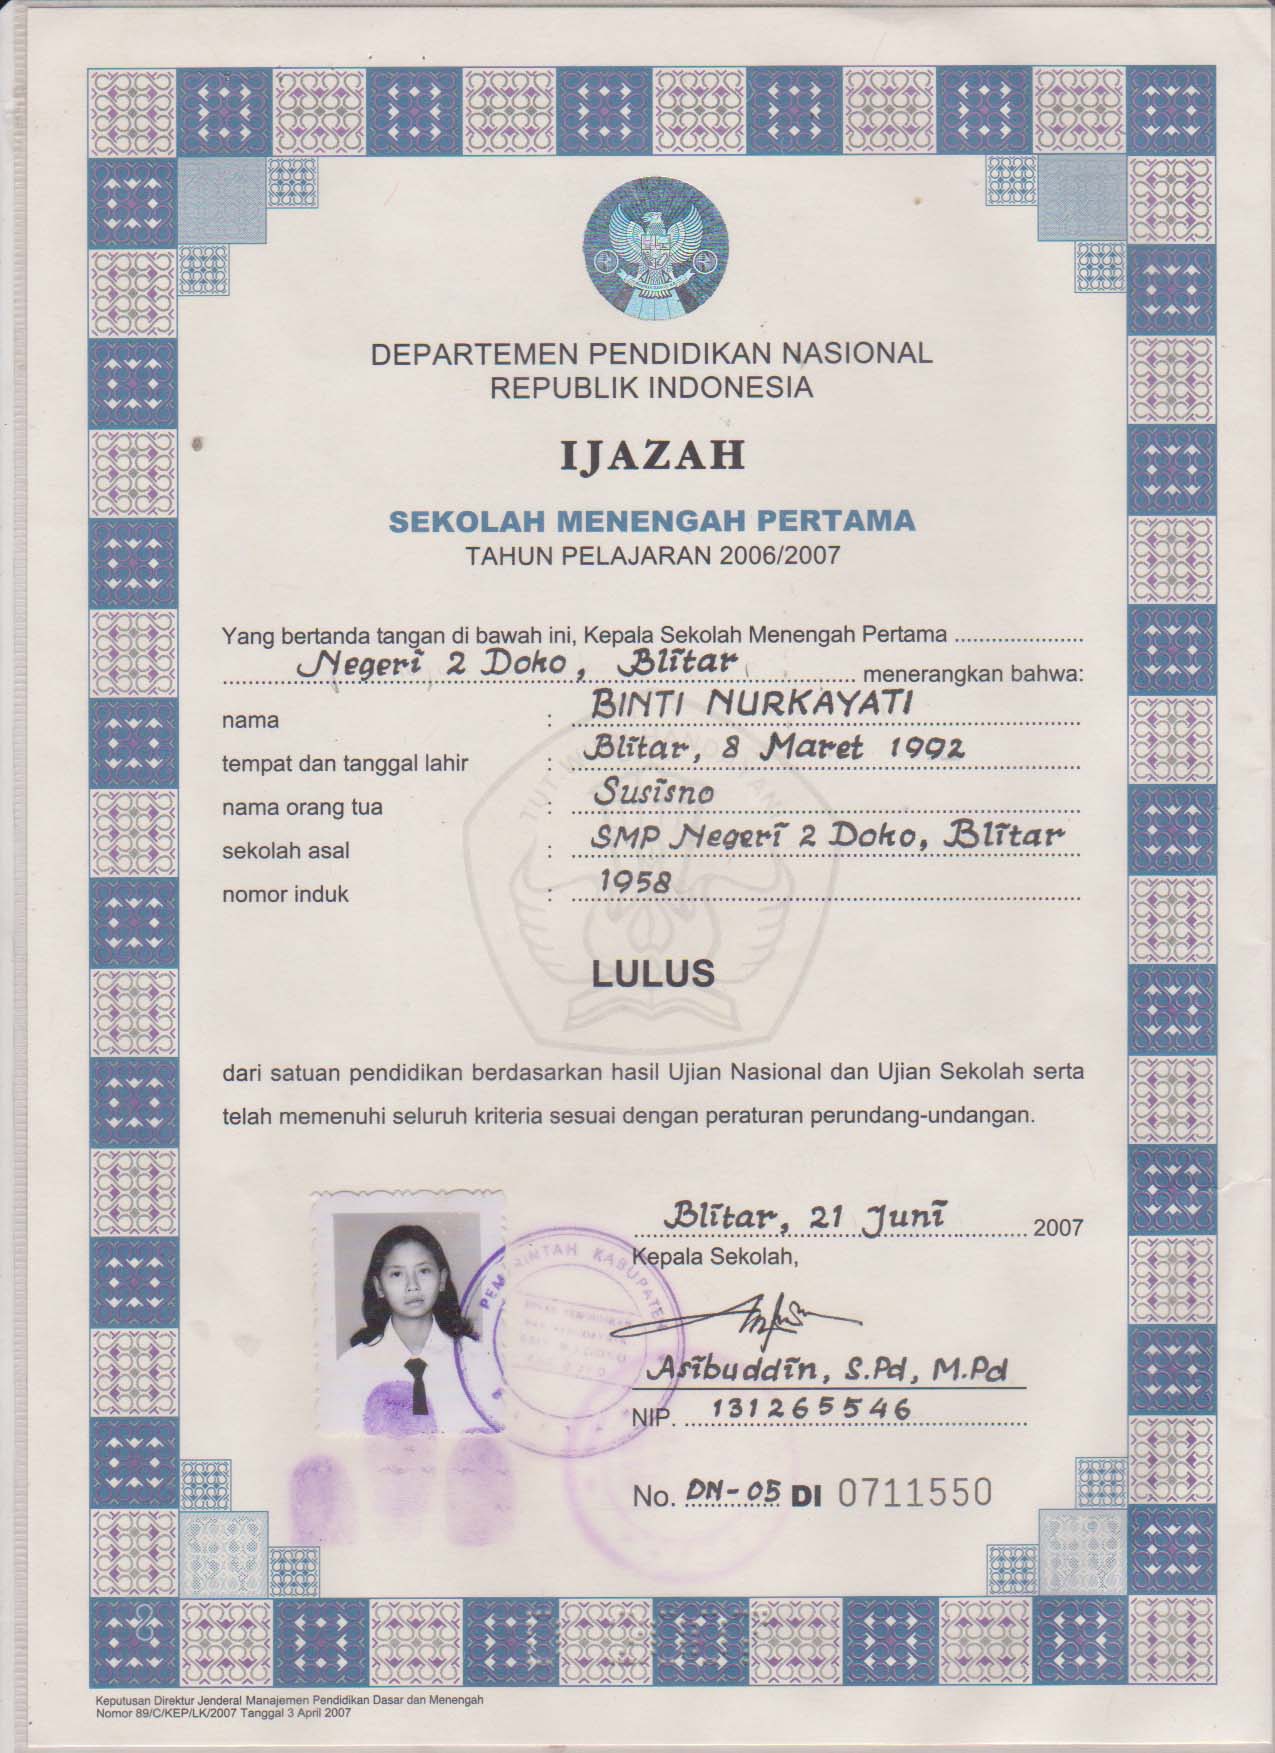 DEPARTEMEN PENDIDIKAN NASIONAL
REPUBLIK INDONESIA
IJAZAH
SEKOLAH MENENGAH PERTAMA
TAHUN PELAJARAN 2006/2007
Yang bertanda tangan di bawah ini, Kepala Sekolah Menengah Pertama .....................
Negeri 2 Doko, Blitar menerangkan bahwa:
nama : BINTI NURKAYATI
tempat dan tanggal lahir : Blitar, 8 Maret 1992
nama orang tua : Susisno
sekolah asal : SMP Negeri 2 Doko, Blitar
nomor induk : 1958
LULUS
dari satuan pendidikan berdasarkan hasil Ujian Nasional dan Ujian Sekolah serta
telah memenuhi seluruh kriteria sesuai dengan peraturan perundang-undangan.
Blitar, 21 Juni 2007
Kepala Sekolah,
PEMERINTAH KABUPATEN
Asibuddin, S.Pd, M.Pd
NIP. 131265546
No. DN-05 DI 0711550
Keputusan Direktur Jenderal Manajemen Pendidikan Dasar dan Menengah
Nomor 89/C/KEP/LK/2007 Tanggal 3 April 2007